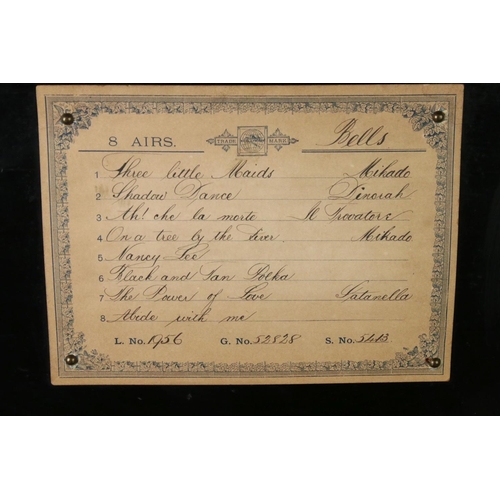 8 AIRS. TRADE MARK Bells
1 Three little Maids Mikado
2 Shadow Dance Dinorah
3 Ah! che la morte Il Trovatore
4 On a tree by the river Mikado
5 Nancy Lee
6 Black and Tan Polka
7 The Power of Love Satanella
8 Abide with me
L. No. G. No. 52828 S. No.